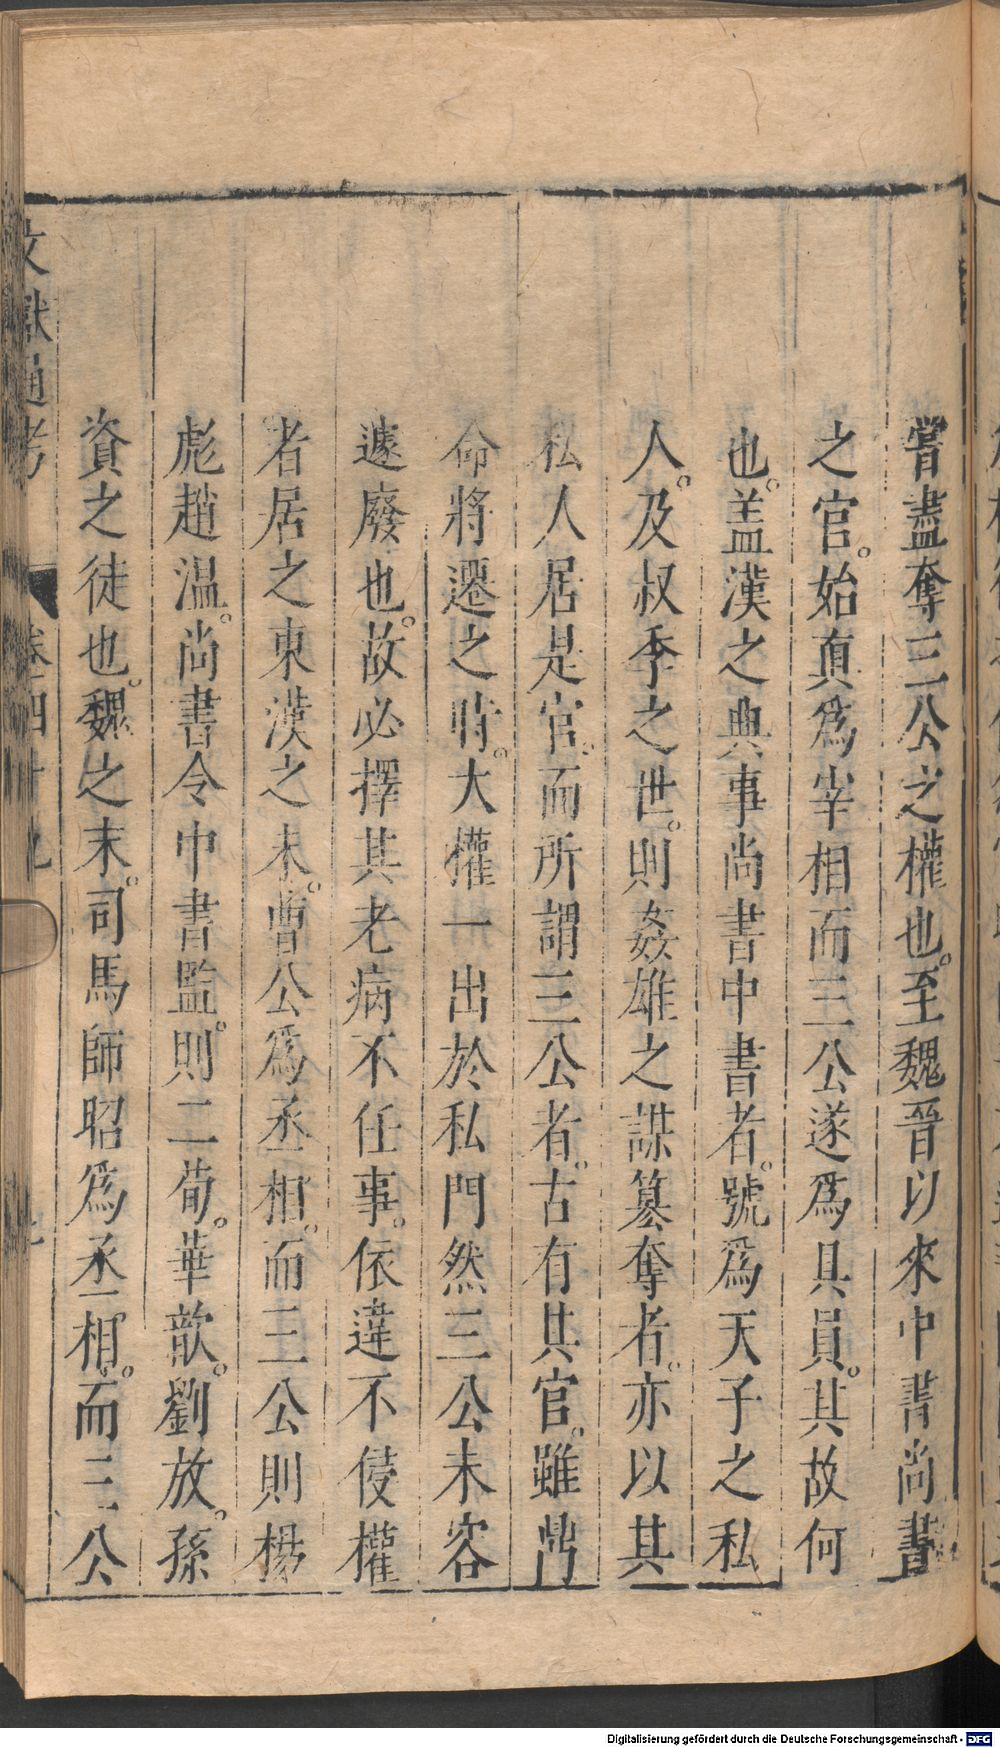 嘗盡奪三公之權也至魏晉以來中書尚書
之官始真爲宰相而三公遂爲具員其故何
也盖漢之典事尚書中書者號爲天子之私
人及叔季之世則姦雄之謀簒奪者亦以其
私人居是官而所謂三公者古有其官雖鼎
命將遷之時大權一出於私門然三公未容
遽廢也故必擇其老病不任事依違不侵權
者居之東漢之末曹公爲丞相而三公則楊
彪趙温尚書令中書監則二荀華歆劉放孫
資之徒也魏之末司馬師昭爲丞相而三公
文獻通考
卷四十九
Digitalisierung gefördert durch die Deutsche Forschungsgemeinschaft - DFG